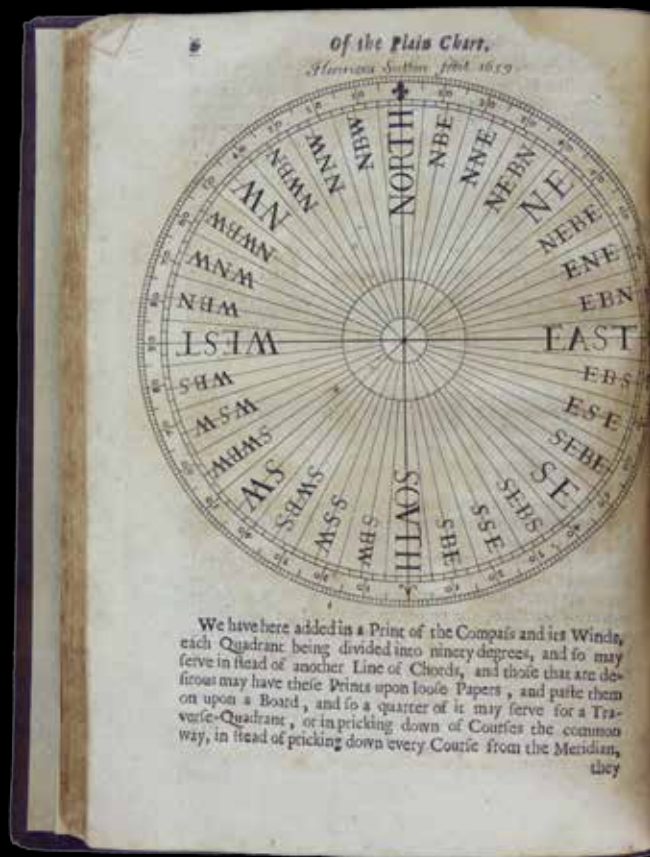 Of the Plain Chart.
Henricus Sutton fecit 1659
NORTH
NBE
NNE
NEBN
NE
NEBE
ENE
EBN
EAST
EBS
ESE
SEBE
SE
SEBS
SSE
SBE
SOVTH
SBW
SSW
SWBS
SW
SWBW
WSW
WBS
WEST
WBN
WNW
NWBW
NW
NWBN
NNW
NBW
We have here added in a Print of the Compaſs and its Winds,
each Quadrant being divided into ninety degrees, and ſo may
ſerve in ſtead of another Line of Chords, and thoſe that are de-
ſirous may have theſe Prints upon looſe Papers, and paſte them
on upon a Board, and ſo a quarter of it may ſerve for a Tra-
verſe-Quadrant, or in pricking down of Courſes the common
way, in ſtead of pricking down every Courſe from the Meridian,
they